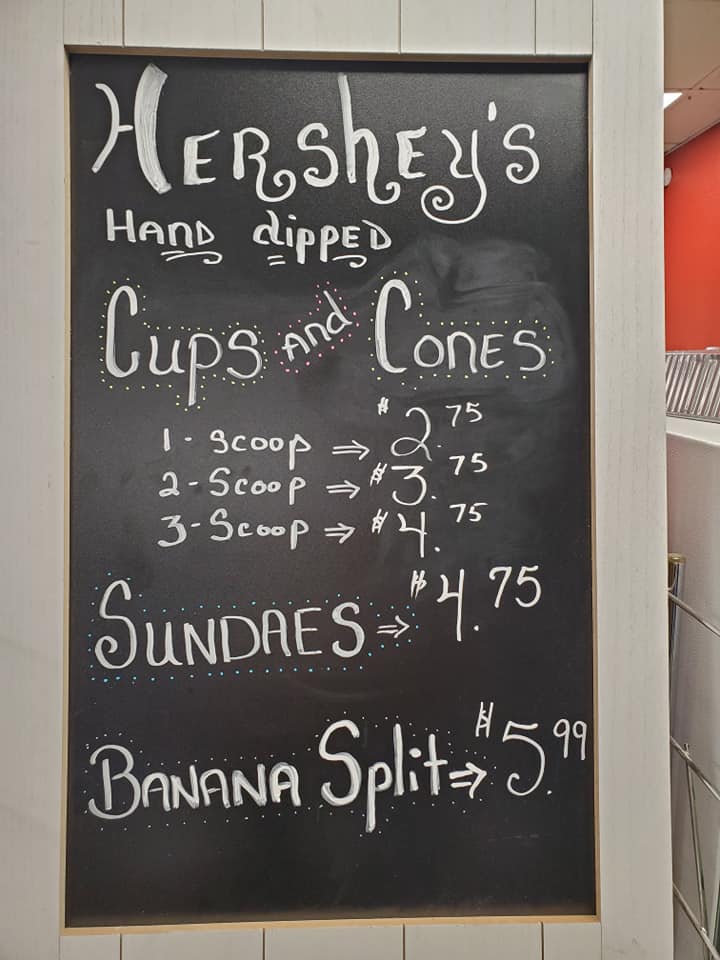 HERShEy's
HAND dippED
Cups AND CONES
1 - Scoop ⇒ $2.75
2 - Scoop ⇒ $3.75
3 - Scoop ⇒ $4.75
SUNDAES ⇒ $4.75
BANANA Split ⇒ $5.99